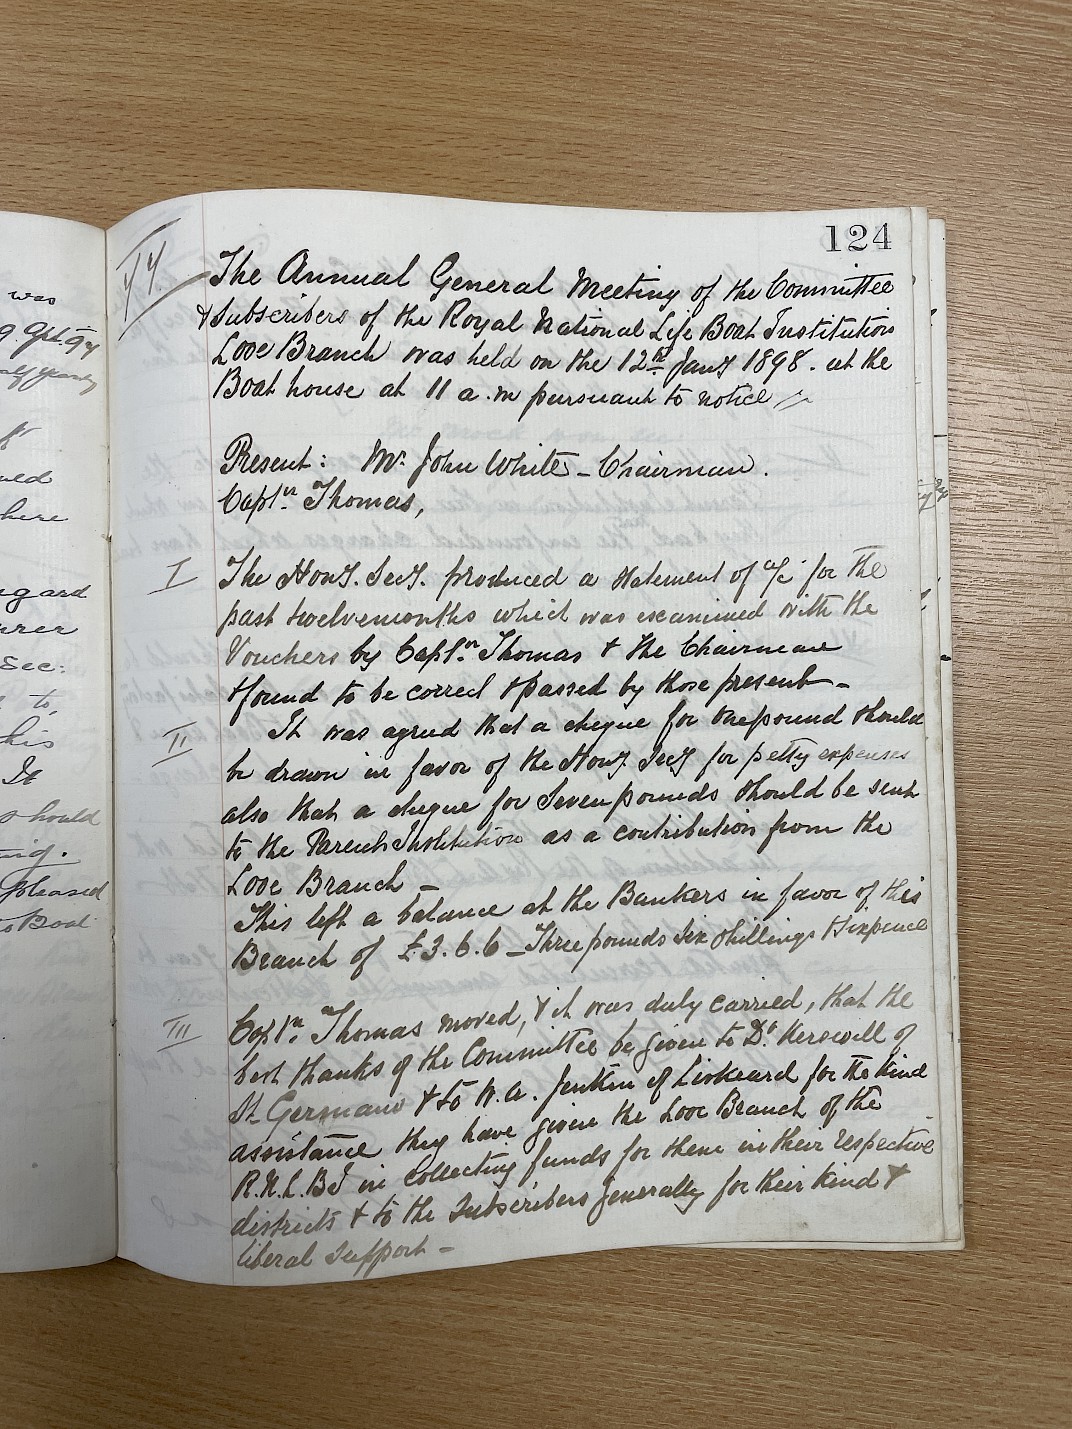 was
half yearly
ued
here
gard
urer
Sec:
to,
his
It
should
pleased
Boat
124
The Annual General Meeting of the Committee
& Subscribers of the Royal National Life Boat Institution
Looe Branch was held on the 12th Jany 1898. at the
Boat house at 11 a.m pursuant to notice
Present: Mr. John White - Chairman.
Captn. Thomas,
I The Hony. Secy. produced a statement of a/c for the
past twelvemonths which was examined with the
Vouchers by Captn. Thomas & the Chairman
& found to be correct & passed by those present -
II It was agreed that a cheque for one pound should
be drawn in favor of the Hony. Secy for petty expenses
also that a cheque for Seven pounds should be sent
to the Parent Institution as a contribution from the
Looe Branch -
This left a balance at the Bankers in favor of this
Branch of £3.6.6 - Three pounds Six Shillings & Sixpence
III Captn. Thomas moved, & it was duly carried, that the
best thanks of the Committee be given to Dr. Kerswill of
St Germans & to W.A. Jenkin of Liskeard for the kind
assistance they have given the Looe Branch of the
R.N.L.B.I in collecting funds for them in their respective
districts & to the Subscribers generally for their kind &
liberal support -